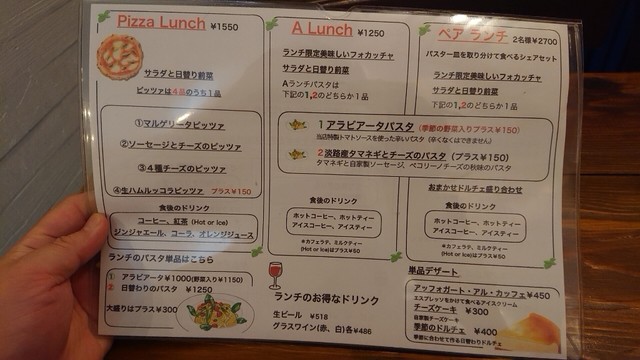 Pizza Lunch ¥1550
サラダと日替り前菜
ピッツァは4品のうち1品
①マルゲリータピッツァ
②ソーセージとチーズのピッツァ
③4種チーズのピッツァ
④生ハムルッコラピッツァ プラス¥150
食後のドリンク
コーヒー、紅茶 (Hot or Ice)
ジンジャエール、コーラ、オレンジジュース
ランチのパスタ単品はこちら
① アラビアータ¥1000(野菜入り¥1150)
2 日替わりのパスタ ¥1250
大盛りはプラス¥300
A Lunch ¥1250
ランチ限定美味しいフォカッチャ
サラダと日替り前菜
Aランチパスタは
下記の1,2のどちらか1品
1 アラビアータパスタ (季節の野菜入りプラス¥150)
当店特製トマトソースを使った辛いパスタ (辛くなくはできません)
2 淡路産タマネギとチーズのパスタ (プラス¥150)
タマネギと自家製ソーセージ、ペコリーノチーズの秋味のパスタ
食後のドリンク
ホットコーヒー、ホットティー
アイスコーヒー、アイスティー
*カフェラテ、ミルクティー
(Hot or Ice)はプラス¥50
ランチのお得なドリンク
生ビール ¥518
グラスワイン(赤、白)各¥486
ペア ランチ 2名様¥2700
パスター皿を取り分けて食べるシェアセット
ランチ限定美味しいフォカッチャ
サラダと日替り前菜
下記の1,2のどちらか1品
おまかせドルチェ盛り合わせ
食後のドリンク
ホットコーヒー、ホットティー
アイスコーヒー、アイスティー
*カフェラテ、ミルクティー
(Hot or Ice)はプラス¥50
単品デザート
アッフォガート・アル・カッフェ¥450
エスプレッソをかけて食べるアイスクリーム
チーズケーキ ¥300
自家製チーズケーキ
季節のドルチェ ¥400
季節に合わせて作る日替わりドルチェ